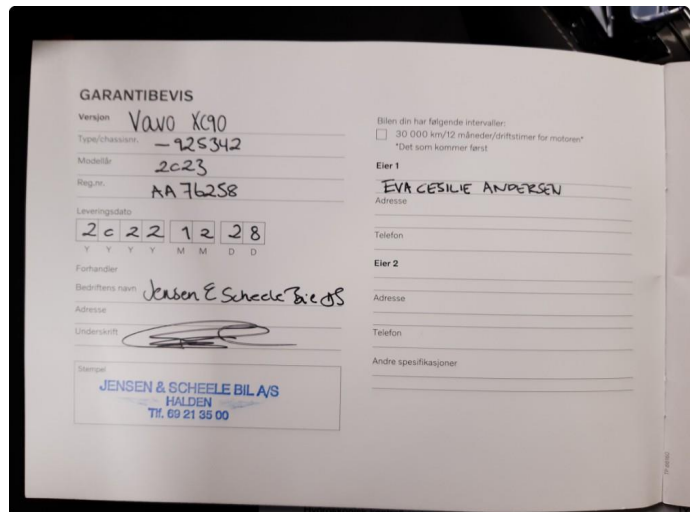 GARANTIBEVIS
Versjon Vovo XC90
Type/chassisnr. - 925342
Modellår 2023
Reg.nr. AA 76258
Leveringsdato
2022 12 28
Y Y Y Y M M D D
Forhandler
Bedriftens navn Jensen & Scheele Bil AS
Adresse
Underskrift
Stempel
JENSEN & SCHEELE BIL A/S
HALDEN
Tlf. 69 21 35 00
Bilen din har følgende intervaller:
30 000 km/12 måneder/driftstimer for motoren*
*Det som kommer først
Eier 1
EVA CESILIE ANDERSEN
Adresse
Telefon
Eier 2
Adresse
Telefon
Andre spesifikasjoner